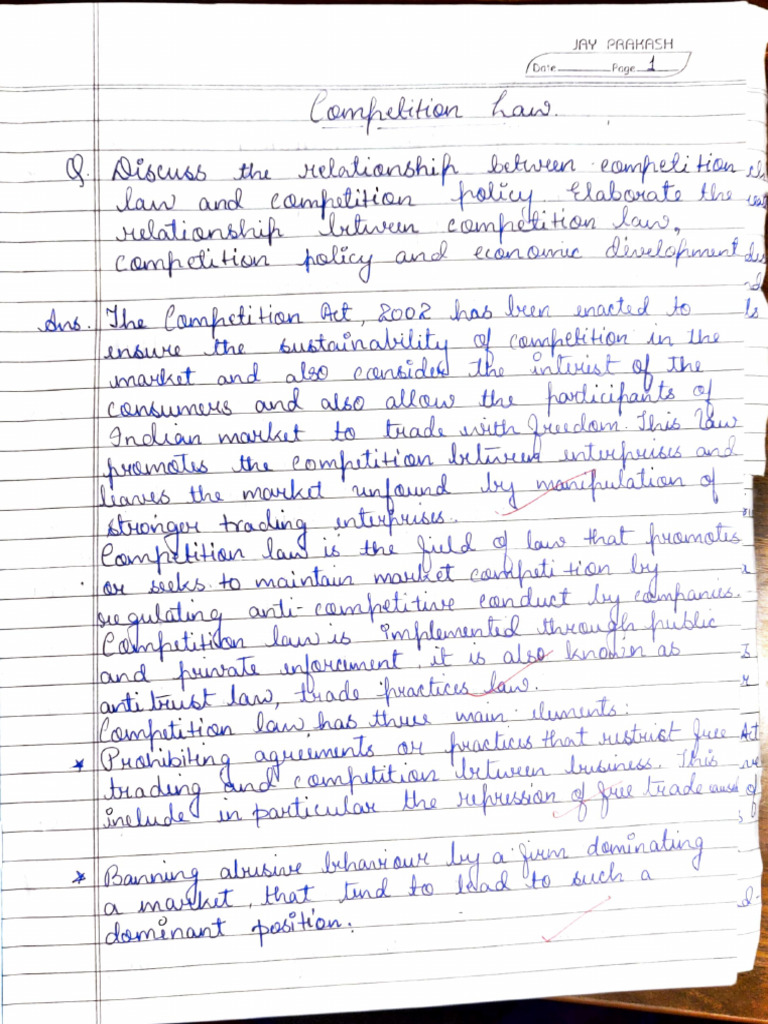 JAY PRAKASH
Date Page 1
Competition Law.
Q. Discuss the relationship between competition
law and competition policy. Elaborate the
relationship between competition law,
competition policy and economic development
Ans. The Competition Act, 2002 has been enacted to
ensure the sustainability of competition in the
market and also consider the interest of the
consumers and also allow the participants of
Indian market to trade with freedom. This law
promotes the competition between enterprises and
leaves the market unfound by manipulation of
stronger trading enterprises.
Competition law is the field of law that promotes
or seeks to maintain market competition by
regulating anti-competitive conduct by companies.
Competition law is implemented through public
and private enforcement. it is also known as
anti trust law, trade practices law.
Competition law has three main elements:
* Prohibiting agreements or practices that restrict free
trading and competition between business. This
include in particular the repression of free trade caused
* Banning abusive behaviour by a firm dominating
a market, that tend to lead to such a
dominant position.
Act
of